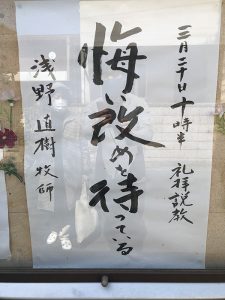 三月二十日十時半 礼拝説教
悔い改めを待っている
浅野直樹牧師